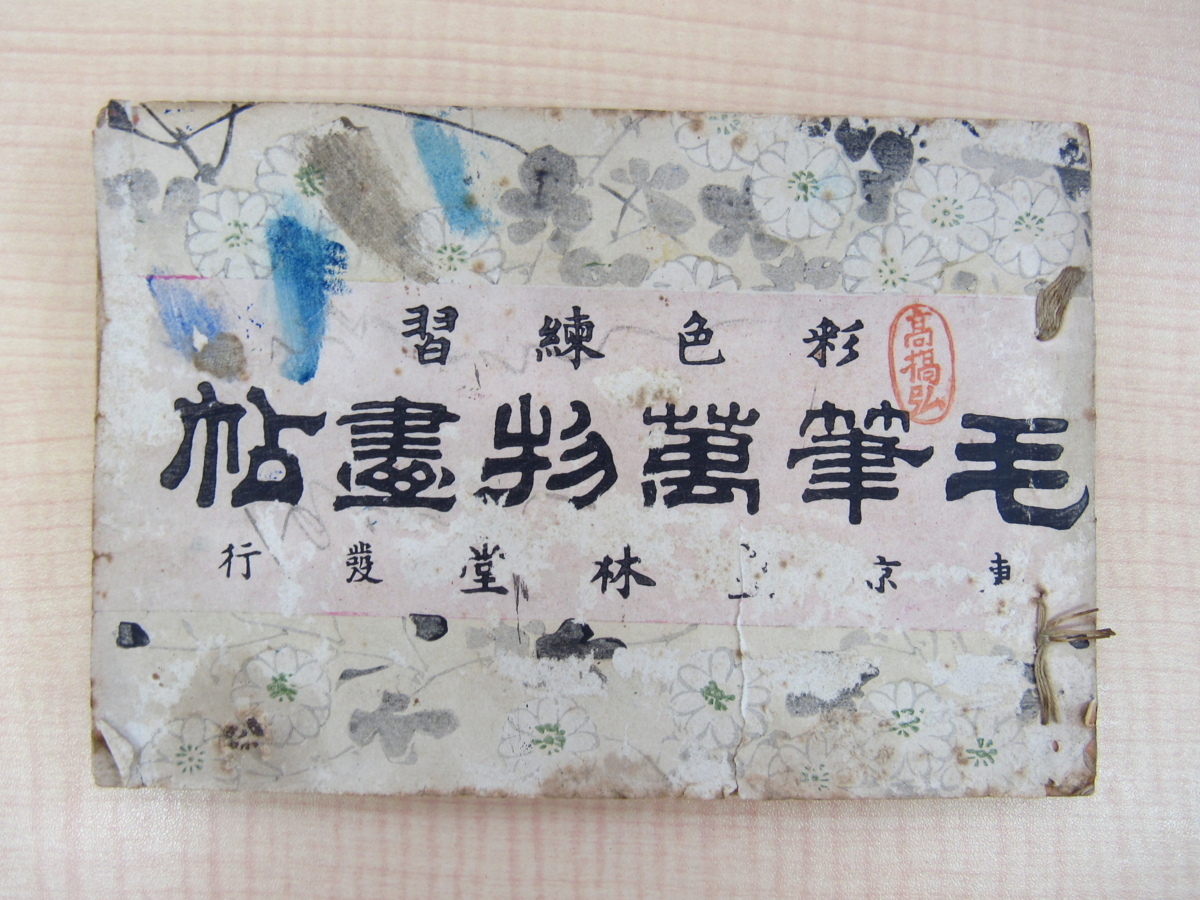 彩色練習
高橋弘
毛筆萬物畫帖
東京林堂發行